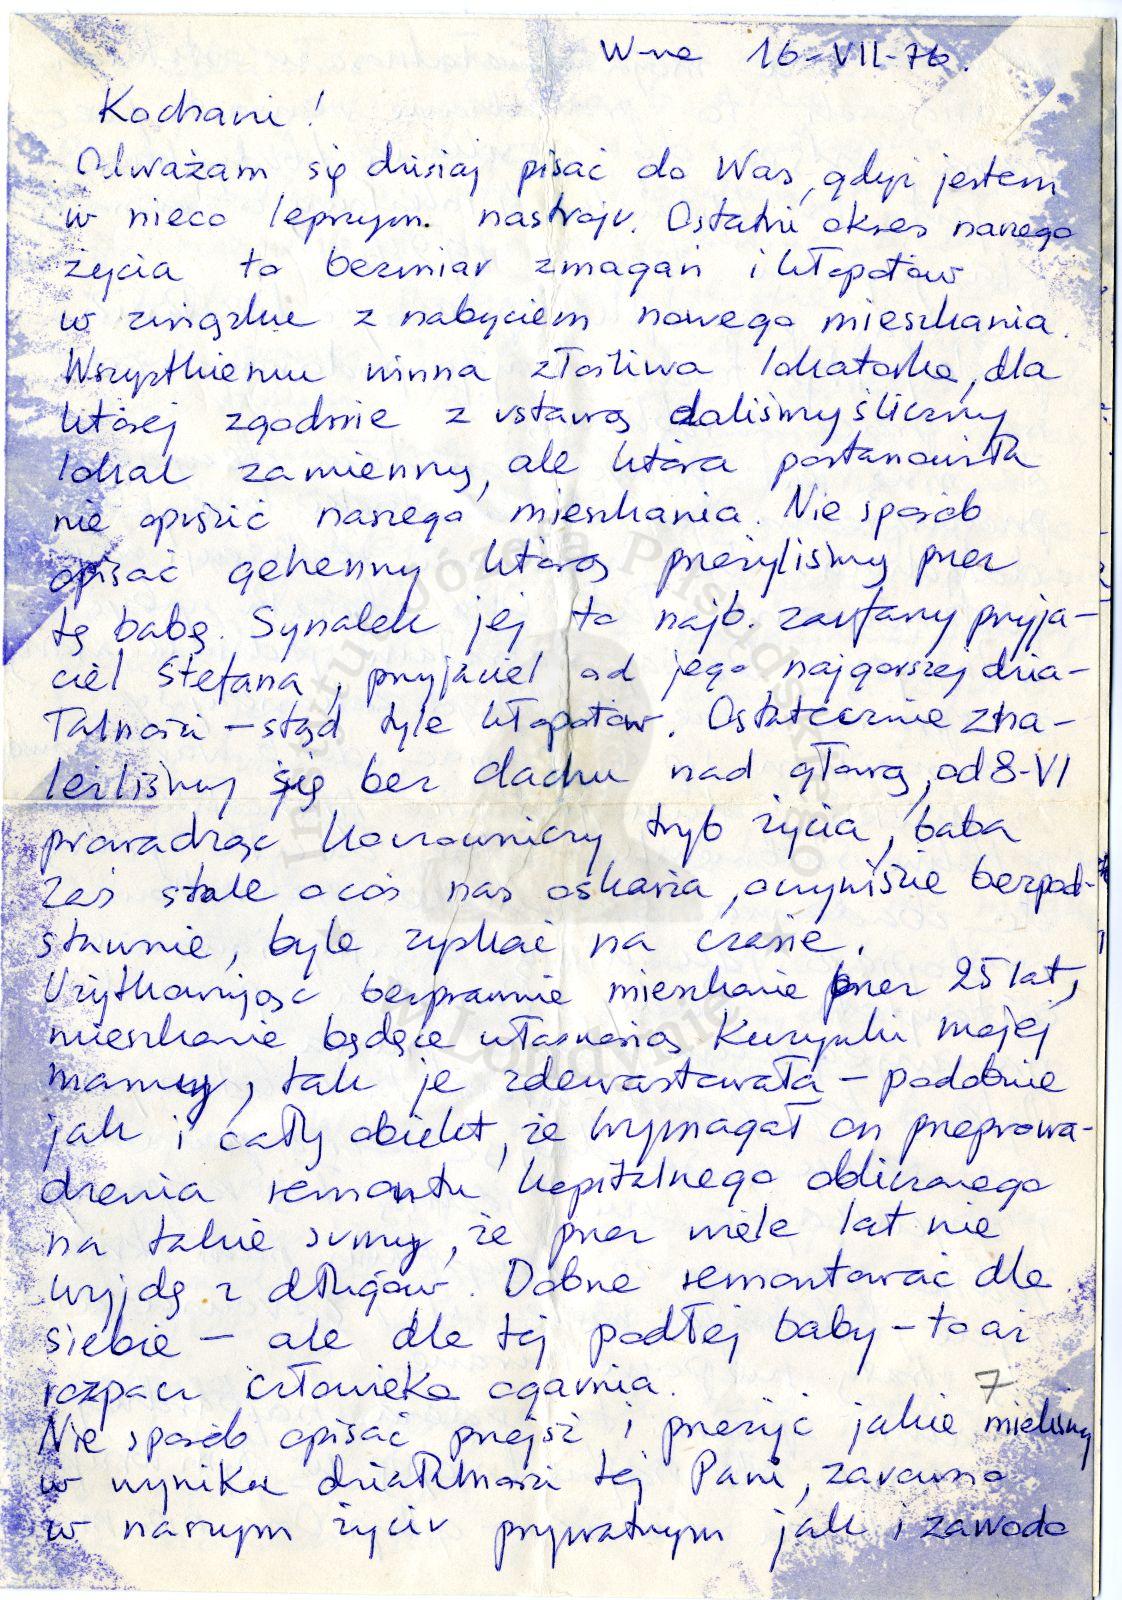 W-wa 16-VII-76.
Kochani!
Odważam się dzisiaj pisać do Was, gdyż jestem
w nieco lepszym nastroju. Ostatni okres naszego
życia to bezmiar zmagań i kłopotów
w związku z nabyciem nowego mieszkania.
Wszystkiemu winna złośliwa lokatorka, dla
której zgodnie z ustawą daliśmy śliczny
lokal zamienny, ale która postanowiła
nie opuścić naszego mieszkania. Nie sposób
opisać gehenny którą przeżyliśmy przez
tę babę. Synalek jej to najb. zaufany przyja-
ciel Stefana, przyjaciel od jego najgorszej dzia-
łalności - stąd tyle kłopotów. Ostatecznie zna-
leźliśmy się bez dachu nad głową, od 8-VI
prowadząc koczowniczy tryb życia, baba
zaś stale o coś nas oskarża, oczywiście bezpod-
stawnie, byle zyskać na czasie.
Użytkowując bezprawnie mieszkanie przez 25 lat,
mieszkanie będące własnością Kuzynki mojej
mamy, tak je zdewastowała - podobnie
jak i cały obiekt, że wymagał on przeprowa-
dzenia remontu kapitalnego obliczonego
na takie sumy, że przez wiele lat nie
wyjdę z długów. Dobrze remontować dla
siebie - ale dla tej podłej baby - to aż
rozpacz człowieka ogarnia.
7
Nie sposób opisać przejść i przeżyć jakie mieliśmy
w wyniku działalności tej Pani, zarówno
w naszym życiu prywatnym jak i zawodo
Instytut Józefa Piłsudskiego w Londynie